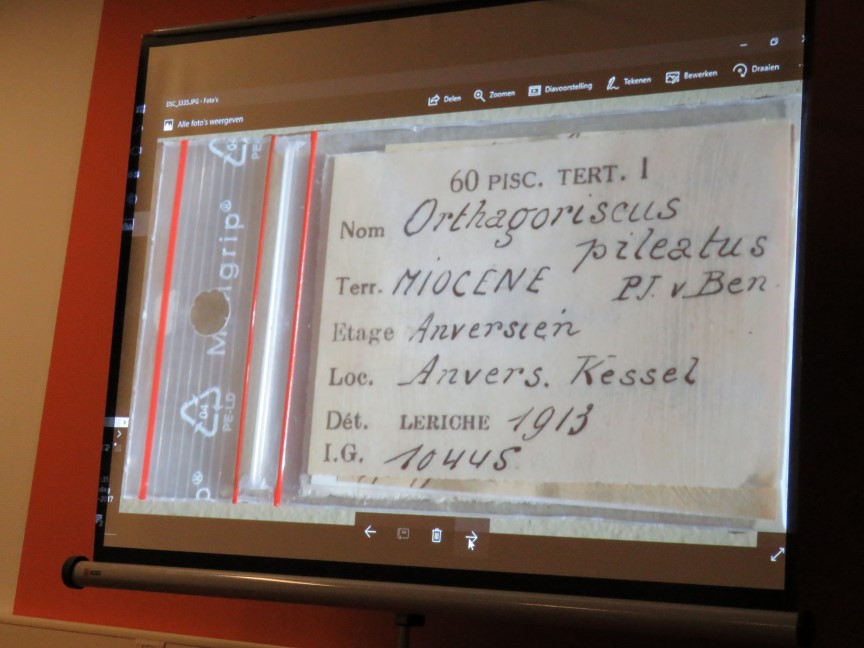 DSC_3335.JPG - Foto's
Delen Zoomen Diavoorstelling Tekenen Bewerken Draaien
Alle foto's weergeven
60 PISC. TERT. I
Nom Orthagoriscus
pileatus
Terr. MIOCENE PJ. v Ben.
Etage Anversien
Loc. Anvers. Kessel
Dét. LERICHE 1913
I.G. 10445
04
PE-LD